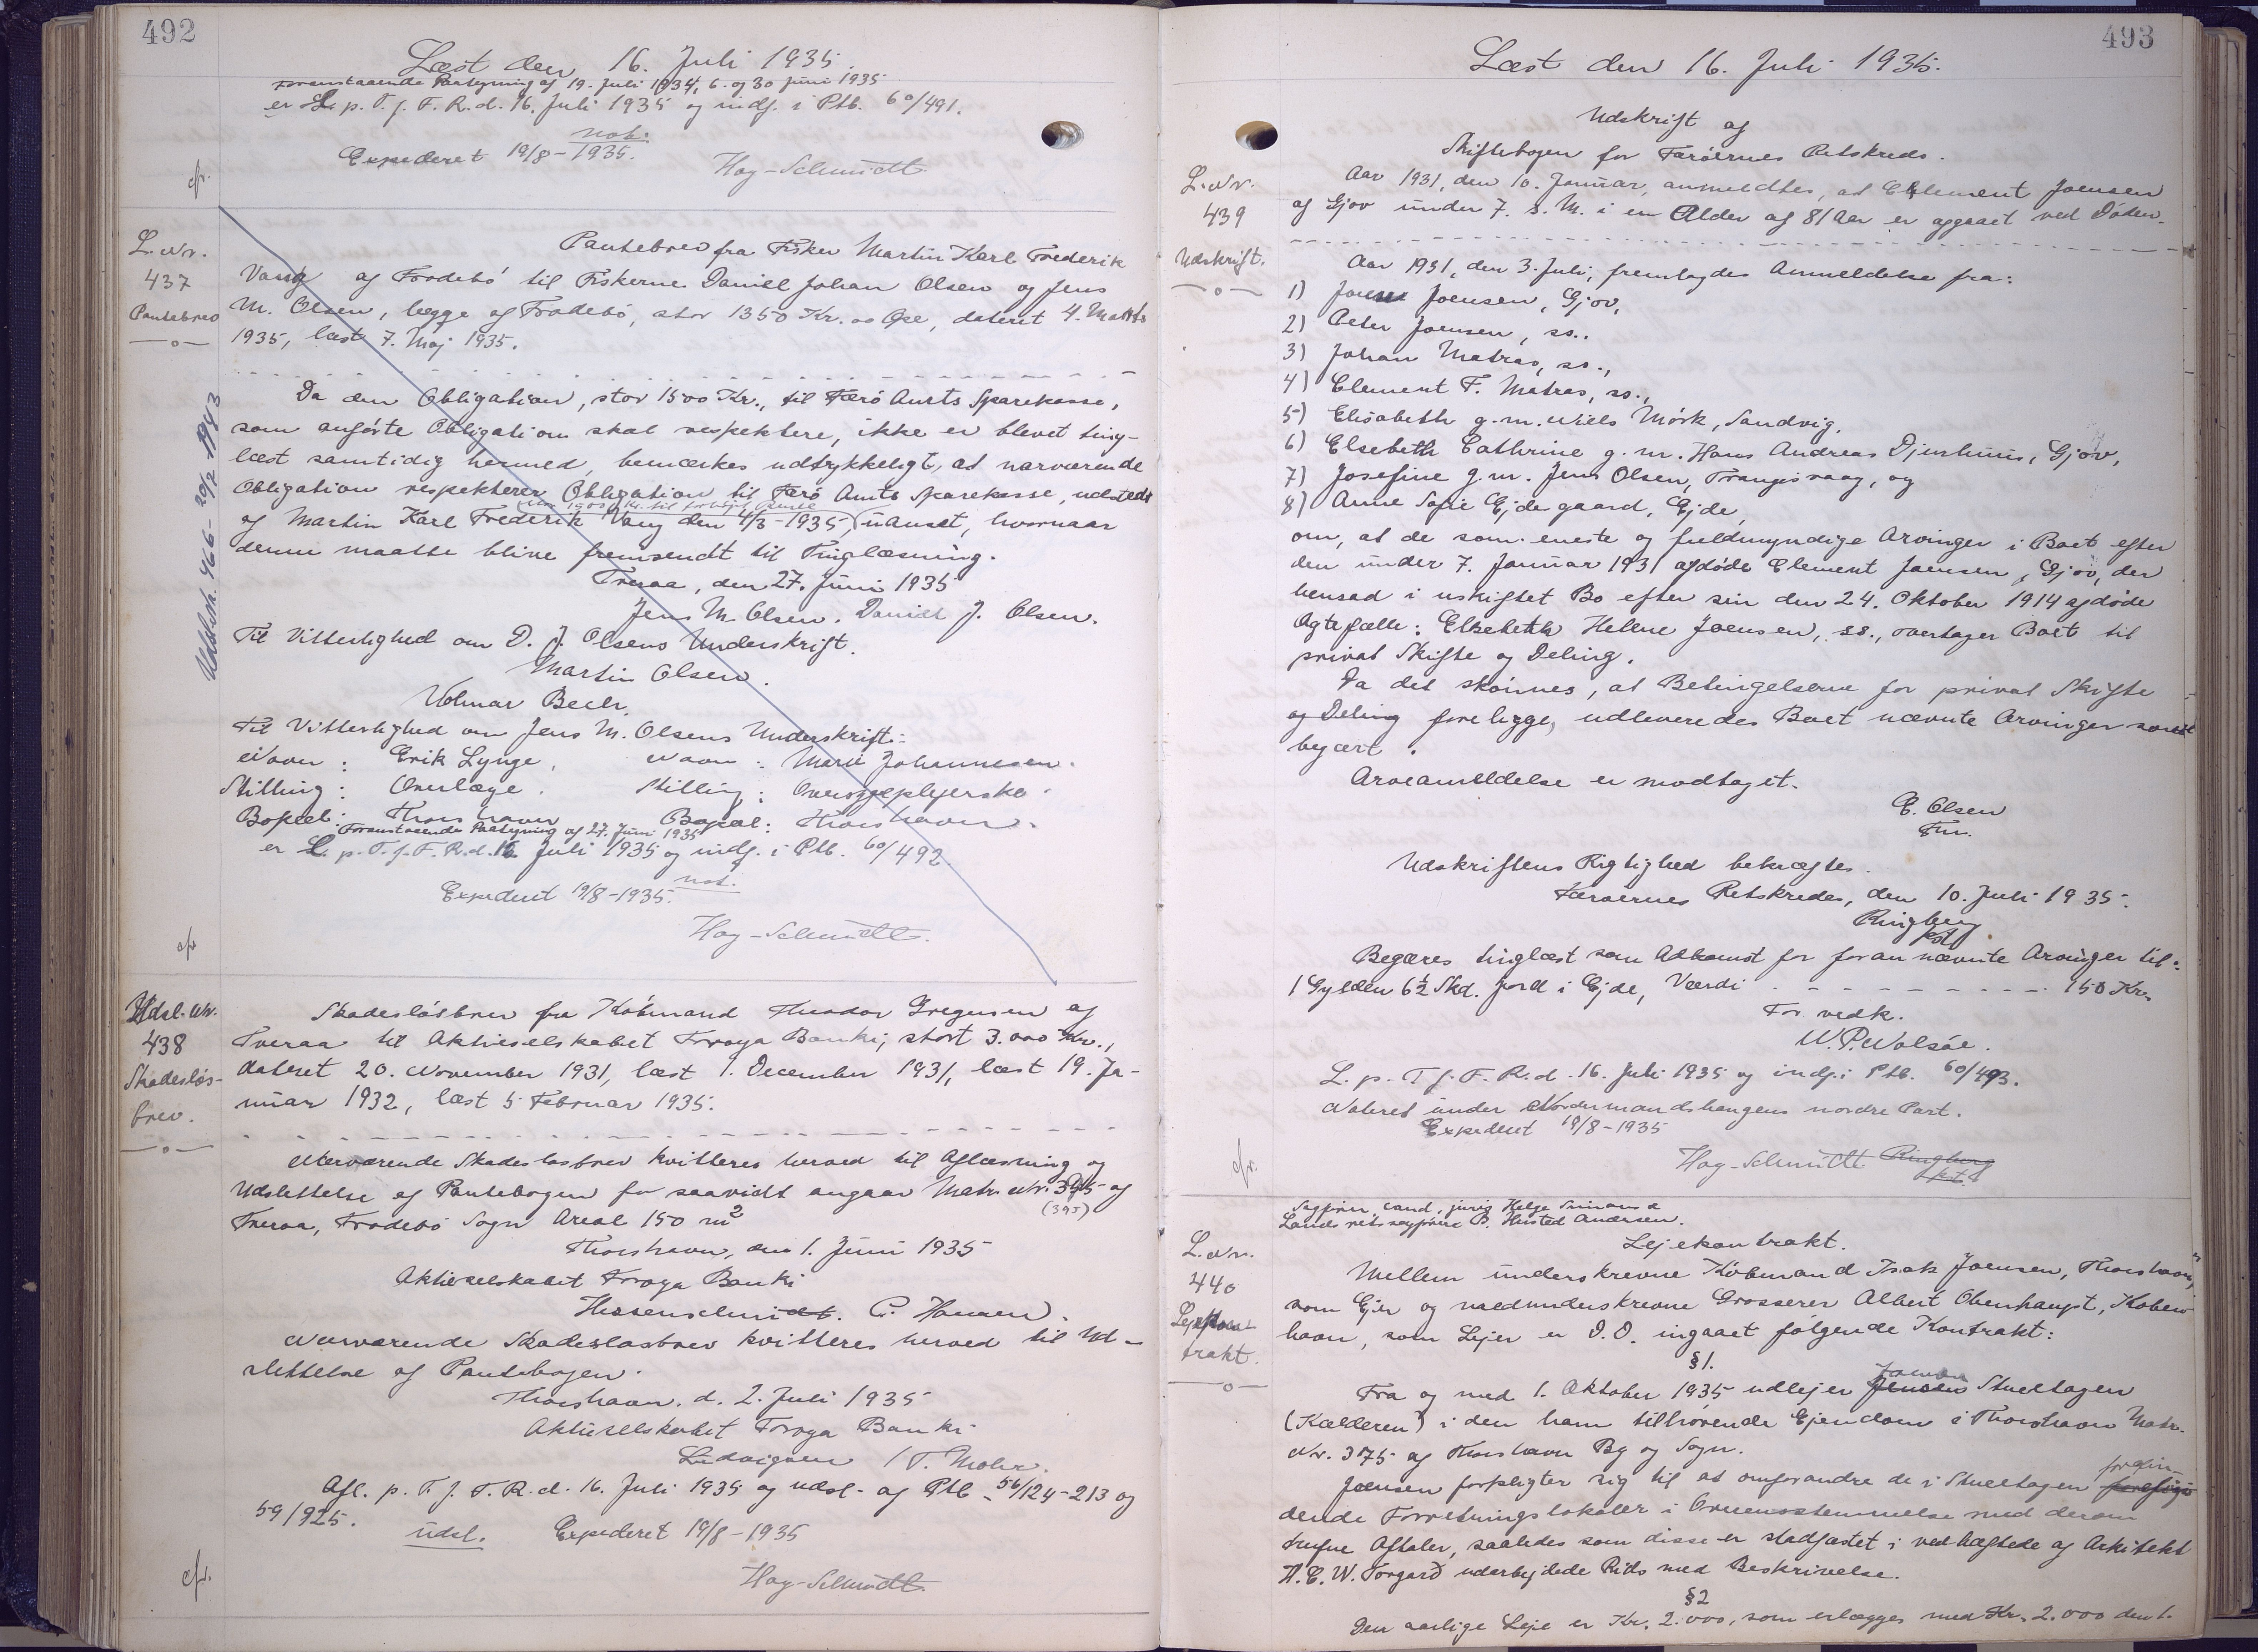 492
Læst den 16. Juli 1935.
Foranstaaende Paategning af 19. Juli 1934, 6. og 30 Juni 1935
er L. p. T. f. F. R. d. 16. Juli 1935 og indf. i Ptb. 60/491.
not.
Expederet 19/8-1935.
Hay-Schmidt.
cfr.
L. Nr.
437
Pantebrev
Pantebrev fra Fisker Martin Karl Frederik
Vang af Frodebö til Fiskerne Daniel Johan Olsen og Jens
M. Olsen, begge af Frodebö, stor 1350 Kr. 00 Øre, dateret 4. Marts
1935, læst 7. Maj 1935.
Da den Obligation, stor 1500 Kr., til Færö Amts Sparekasse,
som anförte Obligation skal respektere, ikke er blevet ting-
læst samtidig hermed, bemærkes udtrykkeligt, at nærværende
Obligation respekterer Obligation til Færö Amts Sparekasse, udstedt
af Martin Karl Frederik Vang den 4/3-1935, uanset, hvornaar
denne maatte blive fremsendt til Tinglæsning.
Tveraa, den 27. Juni 1935
Jens M. Olsen. Daniel J. Olsen.
Til Vitterlighed om D. J. Olsens Underskrift.
Martin Olsen.
Volmar Bech.
Til Vitterlighed om Jens M. Olsens Underskrift:
Navn: Erik Lynge. Navn: Marie Johannesen.
Stilling: Overlæge. Stilling: Oversygeplejerske.
Bopæl: Thorshavn Bopæl: Thorshavn.
Foranstaaende Paategning af 27. Juni 1935
er L. p. T. f. F. R. d. 16. Juli 1935 og indf. i Ptb. 60/492.
not.
Expederet 19/8-1935.
Hay-Schmidt.
cfr
Udsl. Nr.
438
Skadeslös-
brev.
Skadeslösbrev fra Köbmand Theodor Gregersen af
Tveraa til Aktieselskabet Føroya Banki, stort 3.000 Kr.,
dateret 20. November 1931, læst 1. December 1931, læst 19. Ja-
nuar 1932, læst 5 Februar 1935.
Nærværende Skadesløsbrev kvitteres herved til Aflæsning og
Udslettelse af Pantebogen for saavidt angaar Matr. Nr. 395 af
(395)
Tveraa, Frodebö Sogn Areal 150 m2
Thorshavn, den 1. Juni 1935
Aktieselskabet Føroya Banki
C. Hansen.
Nærværende Skadesløsbrev kvitteres herved til Ud-
slettelse af Pantebogen.
Thorshavn. d. 2. Juli 1935
Aktieselskabet Føroya Banki
Ludvigsen / T. Mohr.
Afl. p. T. f. F. R. d. 16. Juli 1935 og udsl. af Ptb. 56/124-213 og
59/925.
udsl. Expederet 19/8-1935
Hay-Schmidt.
cfr.
493
Læst den 16. Juli 1935.
L. Nr.
439
Udskrift.
Udskrift af
Skiftebogen for Færöernes Retskreds.
Aar 1931, den 10. Januar, anmeldtes, at Clement Joensen
af Gjov under 7. s. M. i en Alder af 81 Aar er afgaaet ved Døden.
Aar 1931, den 3. Juli, fremlagdes Anmeldelse fra:
1) Joensen, Gjov,
2) Peter Joensen, ss.,
3) Johan Matras, ss.,
4) Clement F. Matras, ss.,
5) Elisabeth g. m. Niels Mörk, Sandvig,
6) Elsebeth Cathrine g. m. Hans Andreas Djurhuus, Gjov,
7) Josefine g. m. Jens Olsen, Trangisvaag, og
8) Anne Sofie Ejdegaard, Ejde,
om, at de som eneste og fuldmyndige Arvinger i Boet efter
den under 7. Januar 1931 afdöde Clement Joensen, Gjov, der
hensad i uskiftet Bo efter sin den 24. Oktober 1914 afdöde
Ægtefælle: Elsebeth Helene Joensen, ss., overtager Boet til
privat Skifte og Deling.
Da det skönnes, at Betingelserne for privat Skifte
og Deling foreligge, udleveredes Boet nævnte Arvinger som
begært.
Arveanmeldelse er modtaget.
E. Olsen
Fm.
Udskriftens Rigtighed bekræftes.
Færøernes Retskreds, den 10. Juli 1935.
Ringberg
kst
Begæres tinglæst som Adkomst for foran nævnte Arvinger til:
1 Gylden 6½ Skd. Jord i Ejde, Værdi 150 Kr.
For vedk.
W. P. Nolsöe.
L. p. T. f. F. R. d. 16. Juli 1935 og indf. i Ptb. 60/493.
Noteret under Nordmandshaugens nordre Part.
Expederet 19/8-1935
Hay-Schmidt Ringberg
kst.
cfr.
L. Nr.
440
Lejekon-
trakt.
Sagfører, cand. juris Helge
Landsretssagfører B. Husted Andersen.
Lejekontrakt.
Mellem underskrevne Köbmand Isak Joensen, Thorshavn,
som Ejer og medunderskrevne Grosserer Albert Obenhaupt, Köben-
havn, som Lejer er D. D. ingaaet følgende Kontrakt:
§1.
Joensen
Fra og med 1. Oktober 1935 udlejer Jensen Stueetagen
(Kælderen) i den ham tilhørende Ejendom i Thorshavn Matr.
Nr. 375 af Thorshavn By og Sogn.
Joensen forpligter sig til at omforandre de i Stueetagen
dende Forretningslokaler i Overensstemmelse med derom
trufne Aftaler, saaledes som disse er stadfæstet i vedhæftede af Arkitekt
H. C. W. Torgarð udarbejdede Rids med Beskrivelse.
§2
Den aarlige Leje er Kr. 2.000, som erlægges med Kr. 2.000 den 1.
Udsl. 20/2 1943